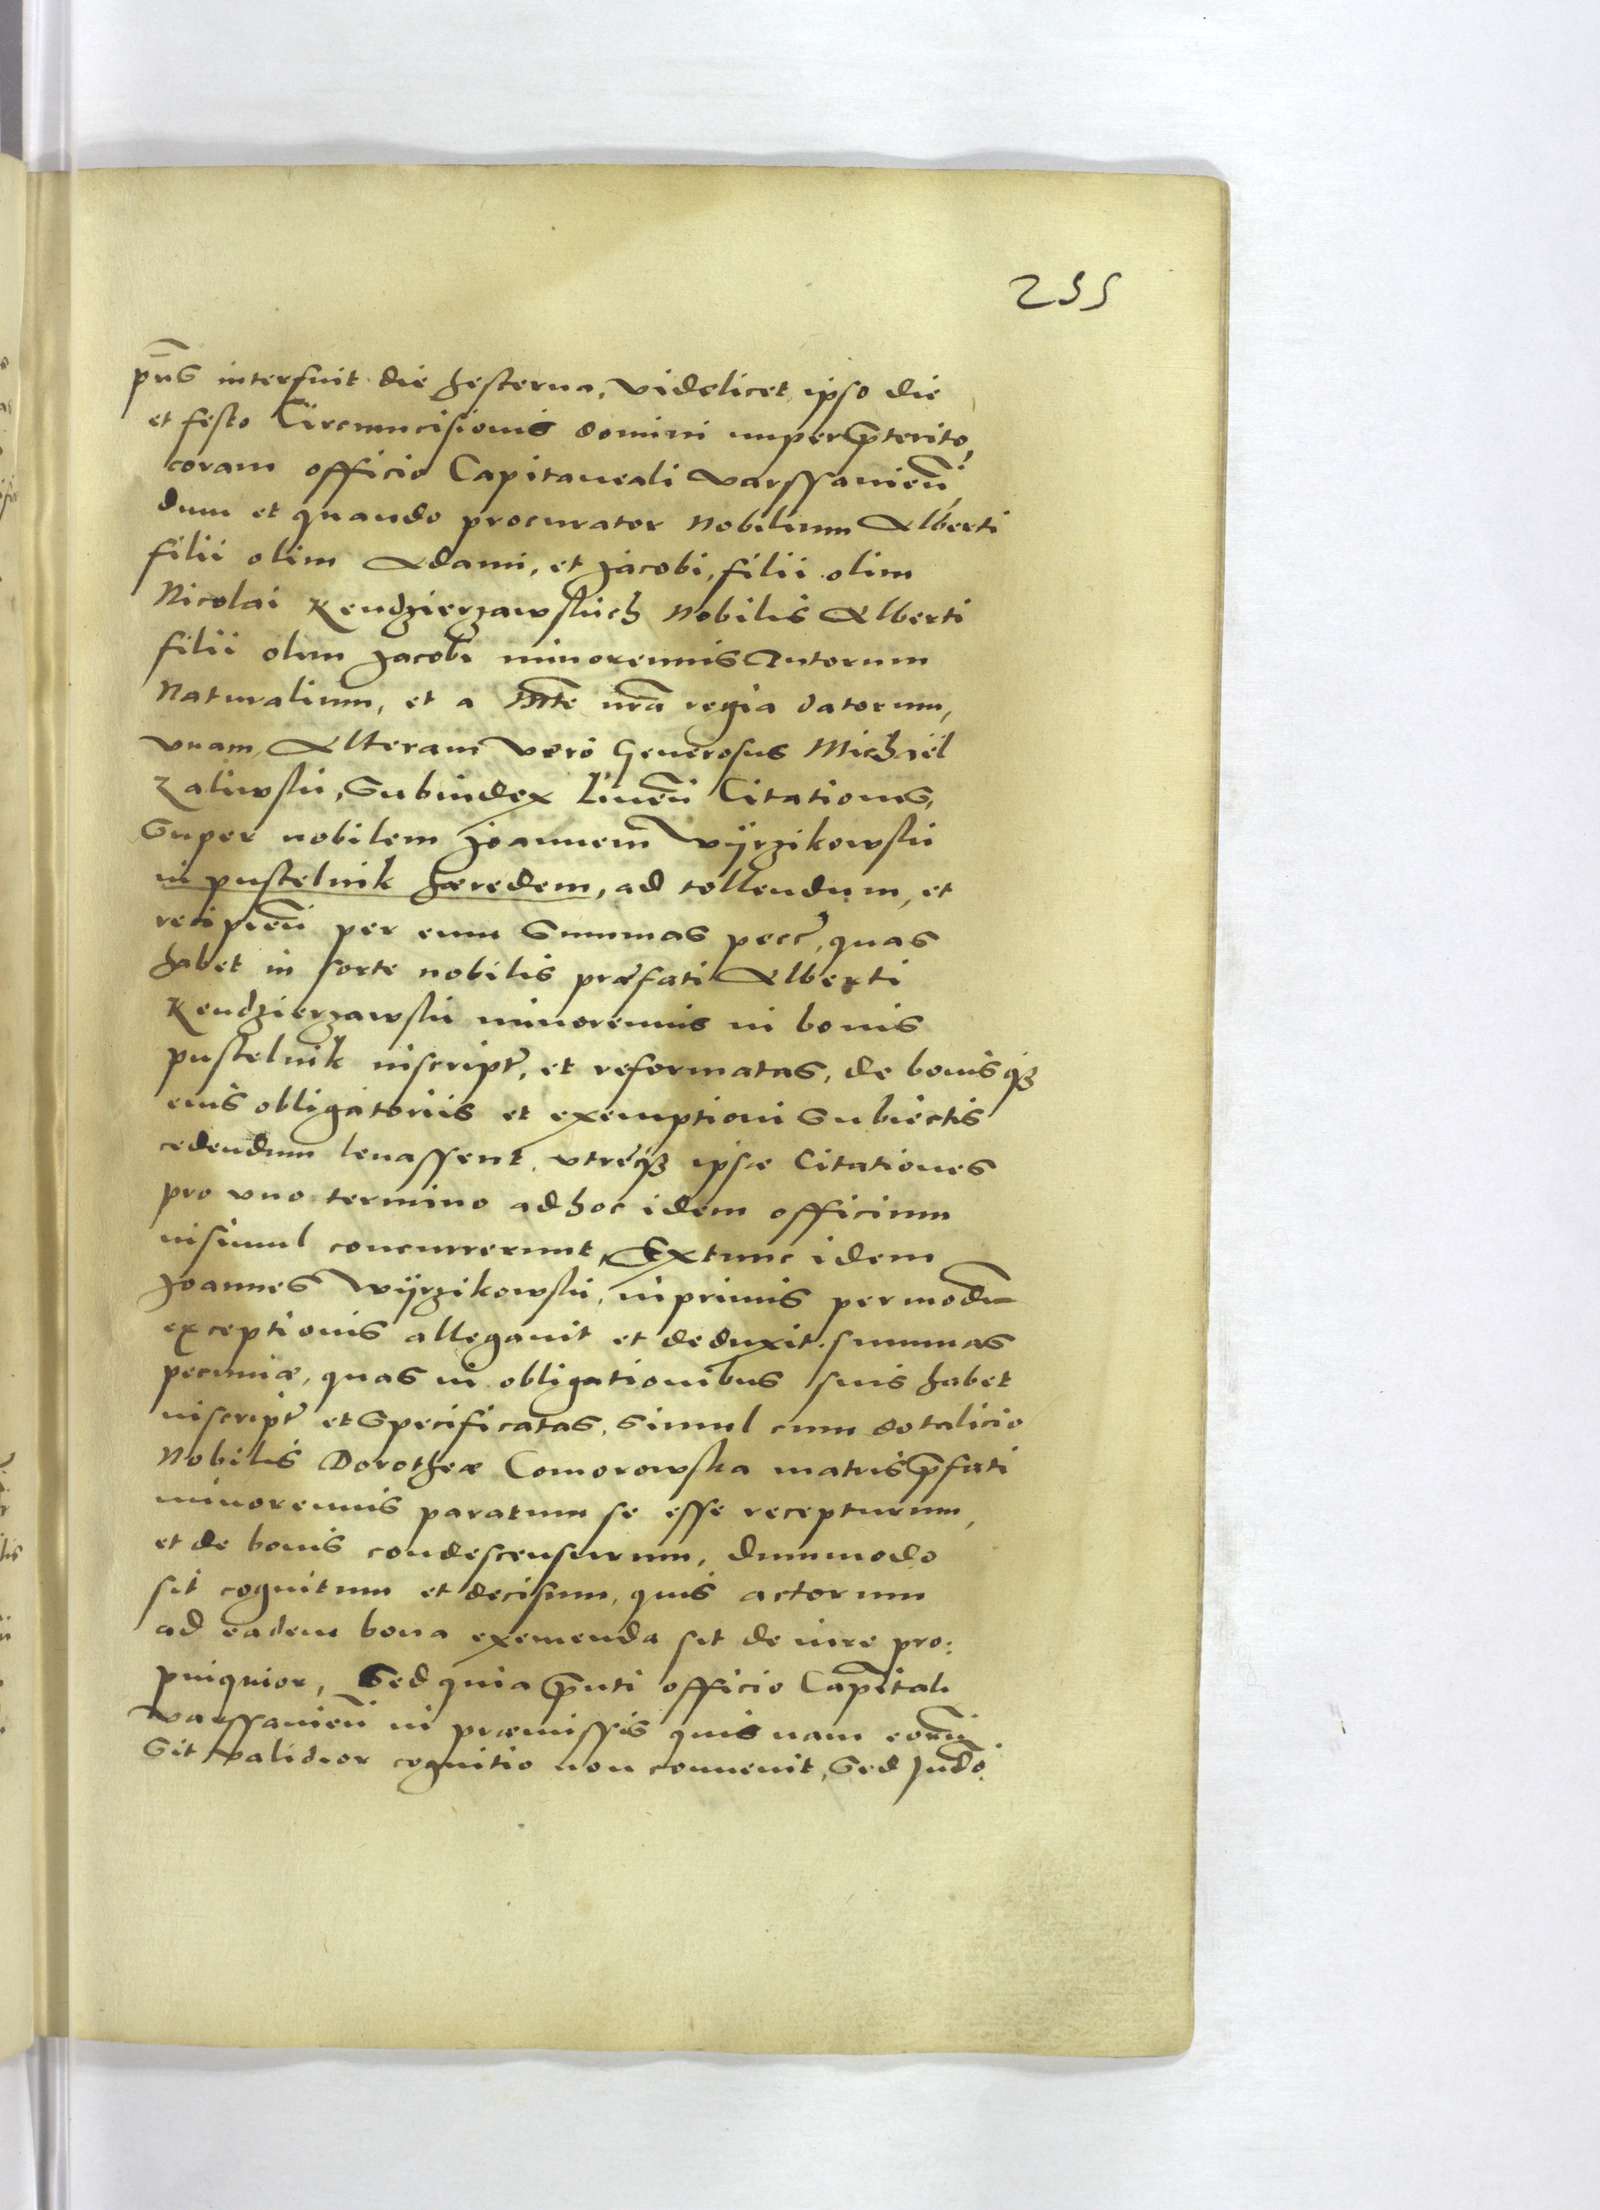 255
pn̄s interfuit die hesterna, videlicet ipso die
et festo Circumcisionis domini nuper p̄terito,
coram officio Capitaneali varssavien̄,
dum et quando procurator nobilium Alberti
filii olim Adami, et Jacobi, filii olim
Nicolai Kendzierzawskich nobilis Alberti
filii olim Jacobi minorennis Tutorum
Naturalium, et a Mt̄e nr̄a regia datorum,
vnam, Alteram vero Generosus Michaël
Zaliwski, Subiudex Liuen̄ Citationes,
Super nobilem Joannem Wÿrzikowski
in pustelnik hæredem, ad tollendum, et
recipien̄ per eum Summas pecc̄, quas
habet in sorte nobilis præfati Alberti
Kendzierzawski minorennis in bonis
pustelnik inscript̄, et reformatas, de bonisqꝫ
eius obligatoriis et exemptioni Subiectis
cedendum leuassent, vtræqꝫ ipsæ Citationes
pro vno termino ad hoc idem officium
insimul concurrerunt, Extunc idem
Joannes Wÿrzikowski, inprimis per modū
exceptionis allegauit et deduxit. summas
pecuniæ, quas in obligationibus suis habet
inscript̄ et Specificatas, Simul cum dotalicio
Nobilis Dorotheæ Comorowska matris p̄fati
minorennis paratum se esse recepturum,
et de bonis condescensurum, dummodo
sit cognitum et decisum, quis actorum
ad eadem bona exemenda sit de iure pro:
pinquior, Sed quia p̄nti officio Capītali
varssavien̄ in præmissis quis nam eorū
Sit validior cognitio non conuenit, Sed Judō.